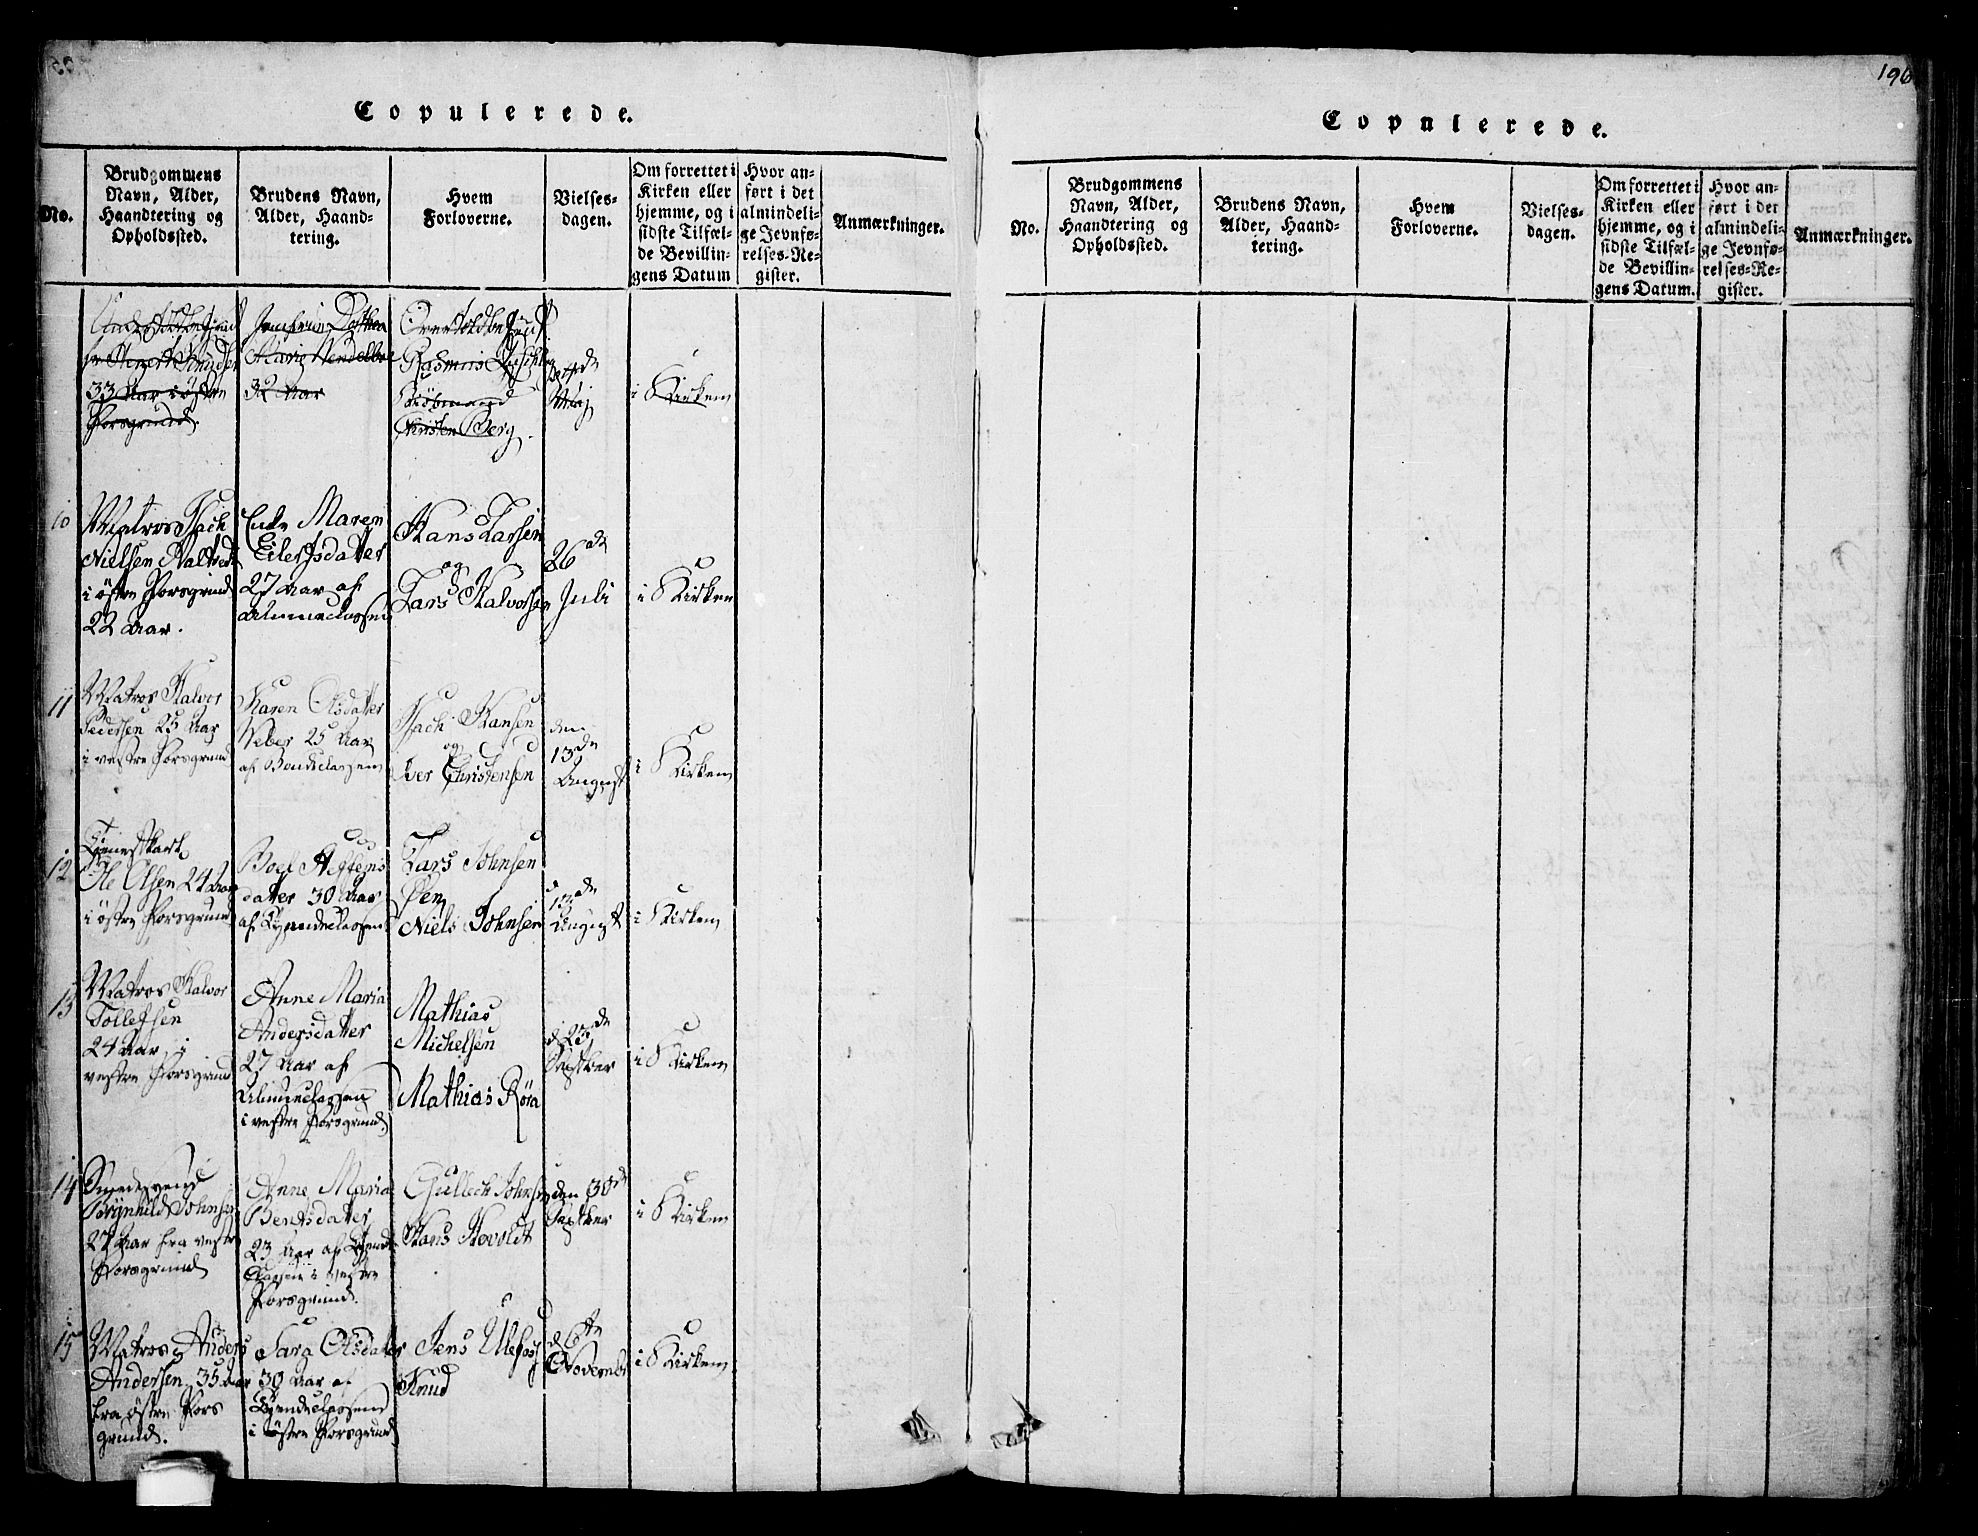 196
Copulerede.
No.
Brudgommens
Navn, Alder,
Haandtering og
Opholdssted.
Brudens Navn,
Alder, Haand-
tering.
Hvem
Forloverne.
Vielses-
dagen.
Om forrettet i
Kirken eller
hjemme, og i
sidste Tilfæl-
de Bevillin-
gens Datum
Hvor an-
ført i det
almindeli-
ge Jevnfø-
relses-Re-
gister.
Anmærkninger.
33 Aar i østre
Porsgrund.
Jomfrue Dothea
Marie Wendelboe
32 Aar
Rasmus
Kiøbmand
Christen Berg.
Maj
i Kirken
10
Matros Isach
Nielsen
i østre Porsgrund
22 Aar.
Maren
Eilertsdatter
27 Aar af
Almueclassen
Hans Larsen
og
Lars Halvorsen
26de
Juli
i Kirken
11
Matros Halvor
Pedersen 25 Aar
i vestre Porsgrund
Karen Olsdatter
Weber 25 Aar
af Bondeclassen
Isach Hansen
og
Iver Christensen
den
13de
August
i Kirken
12
Tienesthk
Ole Olsen 24 Aar
i østre Porsgrund
Boel
datter 30 Aar
af Tyendeclassen
Lars Johnsen
Øen
Niels Johnsen
d
13de
August
i Kirken
13
Matros Halvor
Tollefsen
24 Aar i
vestre Porsgrund
Anne Maria
Andersdatter
27 Aar af
Almueclassen
i vestre Porsgrund.
Mathias
Michelsen
Mathias Röra
d 23de
Septber
i Kirken
14
Smedesvend
Brynhild Johnsen
27 Aar fra vestre
Porsgrund
Anne Maria
Bentsdatter
23 Aar af Tyende
Classen i vestre
Porsgrund.
Gullech Johnsen
Hans Hovoldt
den 30de
Septber
i Kirken
15
Matros Anders
Andersen, 35 Aar
fra østre Pors
grund.
Sara Olsdatter
30 Aar af
Tyendeclassen
i Østre Porsgrund
Jens Ulefoss
Knud
d 6te
November
i Kirken
Copulerede.
No.
Brudgommens
Navn, Alder,
Haandtering og
Opholdssted.
Brudens Navn,
Alder, Haand-
tering.
Hvem
Forloverne.
Vielses-
dagen.
Om forrettet i
Kirken eller
hjemme, og i
sidste Tilfæl-
de Bevillin-
gens Datum.
Hvor an-
ført i det
almindeli-
ge Jevnfø-
relses-Re-
gister.
Anmærkninger.